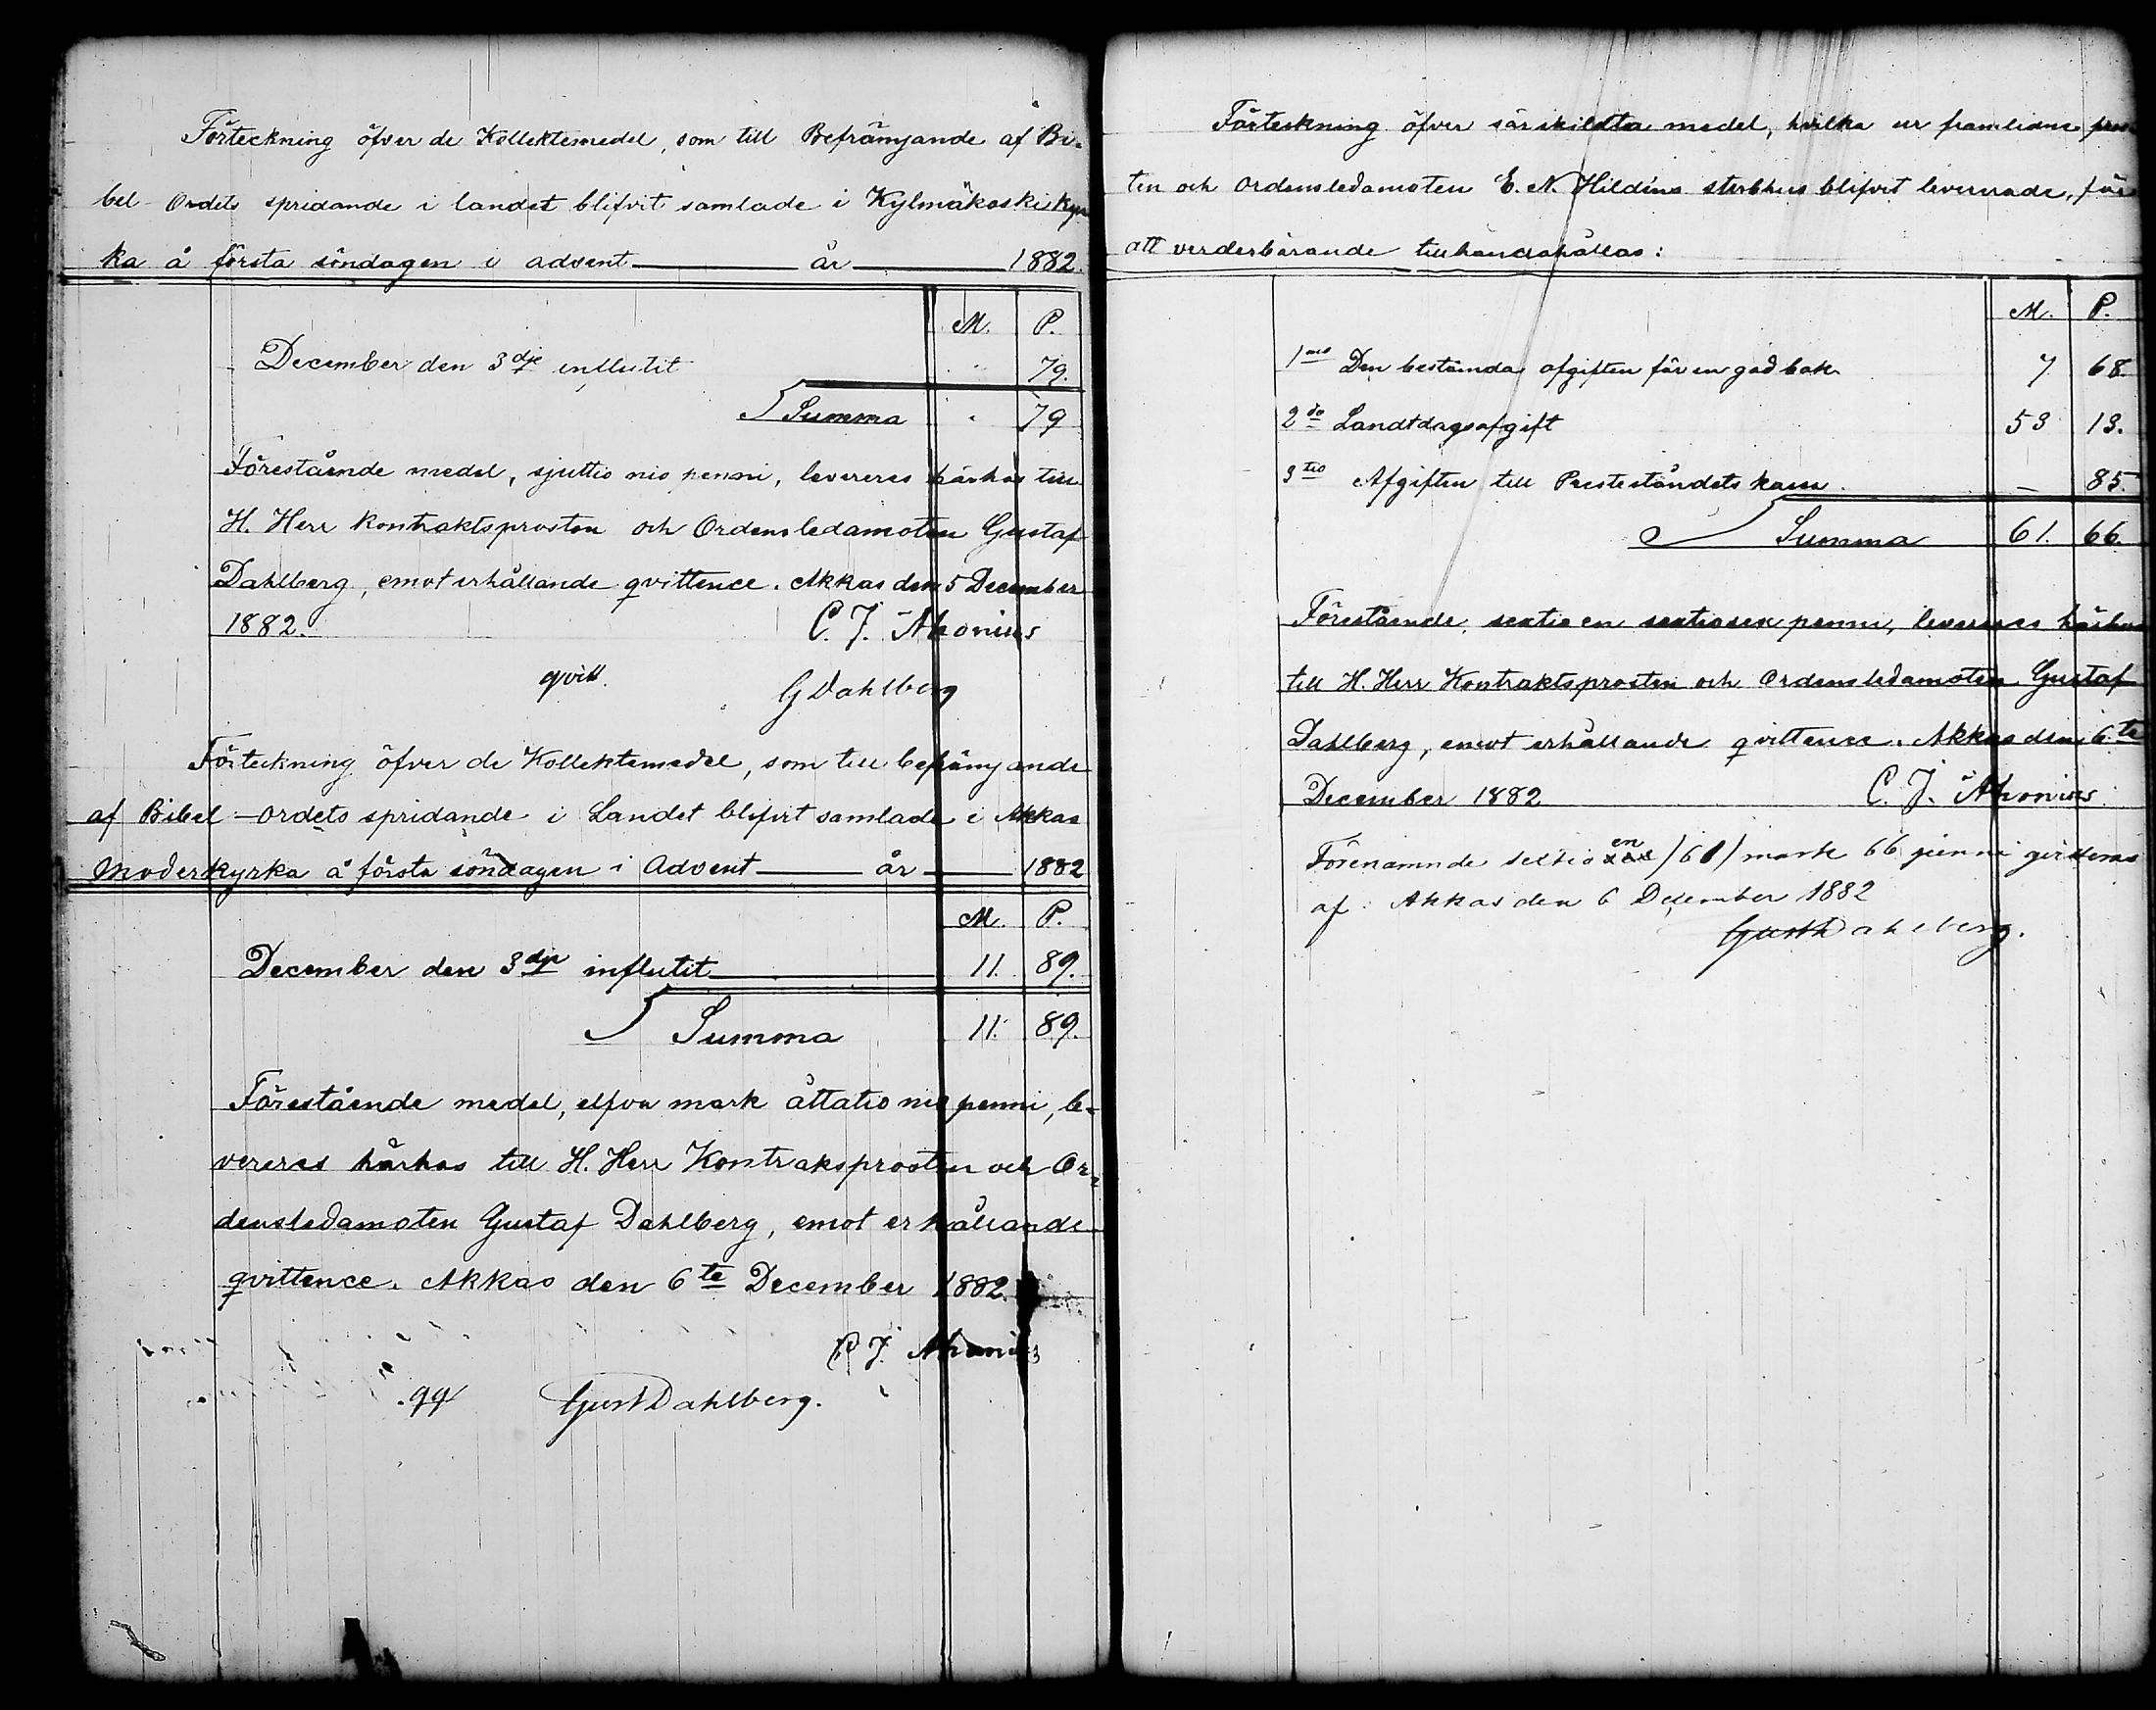 Förteckning öfver de Kollektemedel, som till Befrämjande af Bi-
bel-Ordets spridande i landet blifvit samlade i Kylmäkoski Kyr
ka å första söndagen i advent år 1882.
M. P.
December den 3dje influtit 79.
Summa 79
Förestående medel, sjuttio nio penni, levereres härhos till
H. Herr Kontraktsprosten och Ordensledamoten Gustaf
Dahlberg, emot erhållande qvittence. Akkas den 5 December
1882. C. J. Ahonius
qvitt. G Dahlberg
Förteckning öfver de Kollektemedel, som till befrämjande
af Bibel-ordets spridande i Landet blifvit samlade i Akkas
Moderkyrka å första söndagen i Advent år 1882
M. P.
December den 3dje influtit 11. 89.
Summa 11. 89.
Förestående medel, elfva mark åttatio nio penni, le-
vereres härhos till H. Herr Kontraksprosten och Or-
densledamoten Gustaf Dahlberg, emot erhållande
qvittence. Akkas den 6te December 1882.
C J. Ahonius
qq Gust Dahlberg.
Förteckning öfver särskildta medel, hvilka ur framlidne pros
ten och Ordensledamoten E. N. Hildéns sterbhus blifvit levererade, för
att verderbörande tillhandahållas:
M. P.
1mo Den bestämda afgiften för en god bok 7 68
2do Landtdagsafgift 53 13.
3tio Afgiften till Presteståndets kassa. — 85.
Summa 61. 66.
Förestående, sextio en sextiosex penni, levereres härhos
till H. Herr Kontraktsprosten och Ordensledamoten Gustaf
Dahlberg, emot erhållande qvittence. Akkas den 6te
December 1882 C. J. Ahonius
Förenamnde sextio en /61/ mark 66 penni qvitteras
af. Akkas den 6 December 1882
Gust Dahlberg.